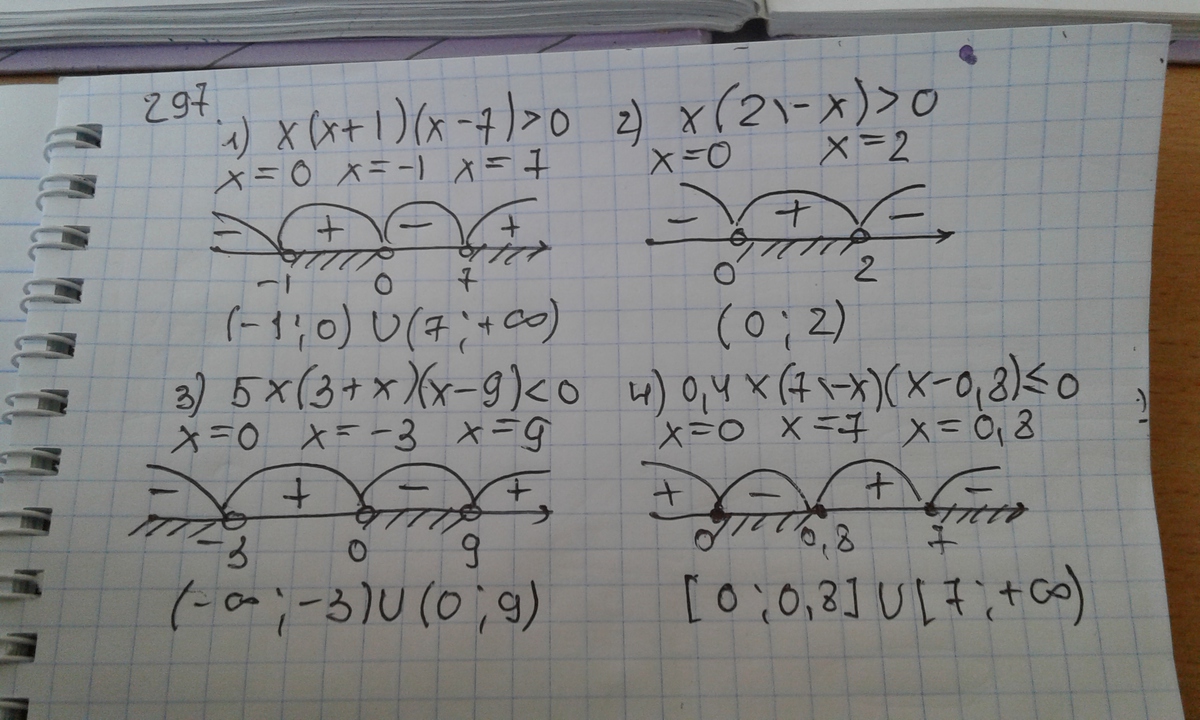 297.
1) x(x+1)(x-7)>0
x=0 x=-1 x=7
- + - +
-1 0 7
(-1;0)∪(7;+∞)
2) x(2-x)>0
x=0 x=2
- + -
0 2
(0;2)
3) 5x(3+x)(x-9)<0
x=0 x=-3 x=9
- + - +
-3 0 9
(-∞;-3)∪(0;9)
4) 0,4x(7-x)(x-0,8)≤0
x=0 x=7 x=0,8
+ - + -
0 0,8 7
[0;0,8]∪[7;+∞)